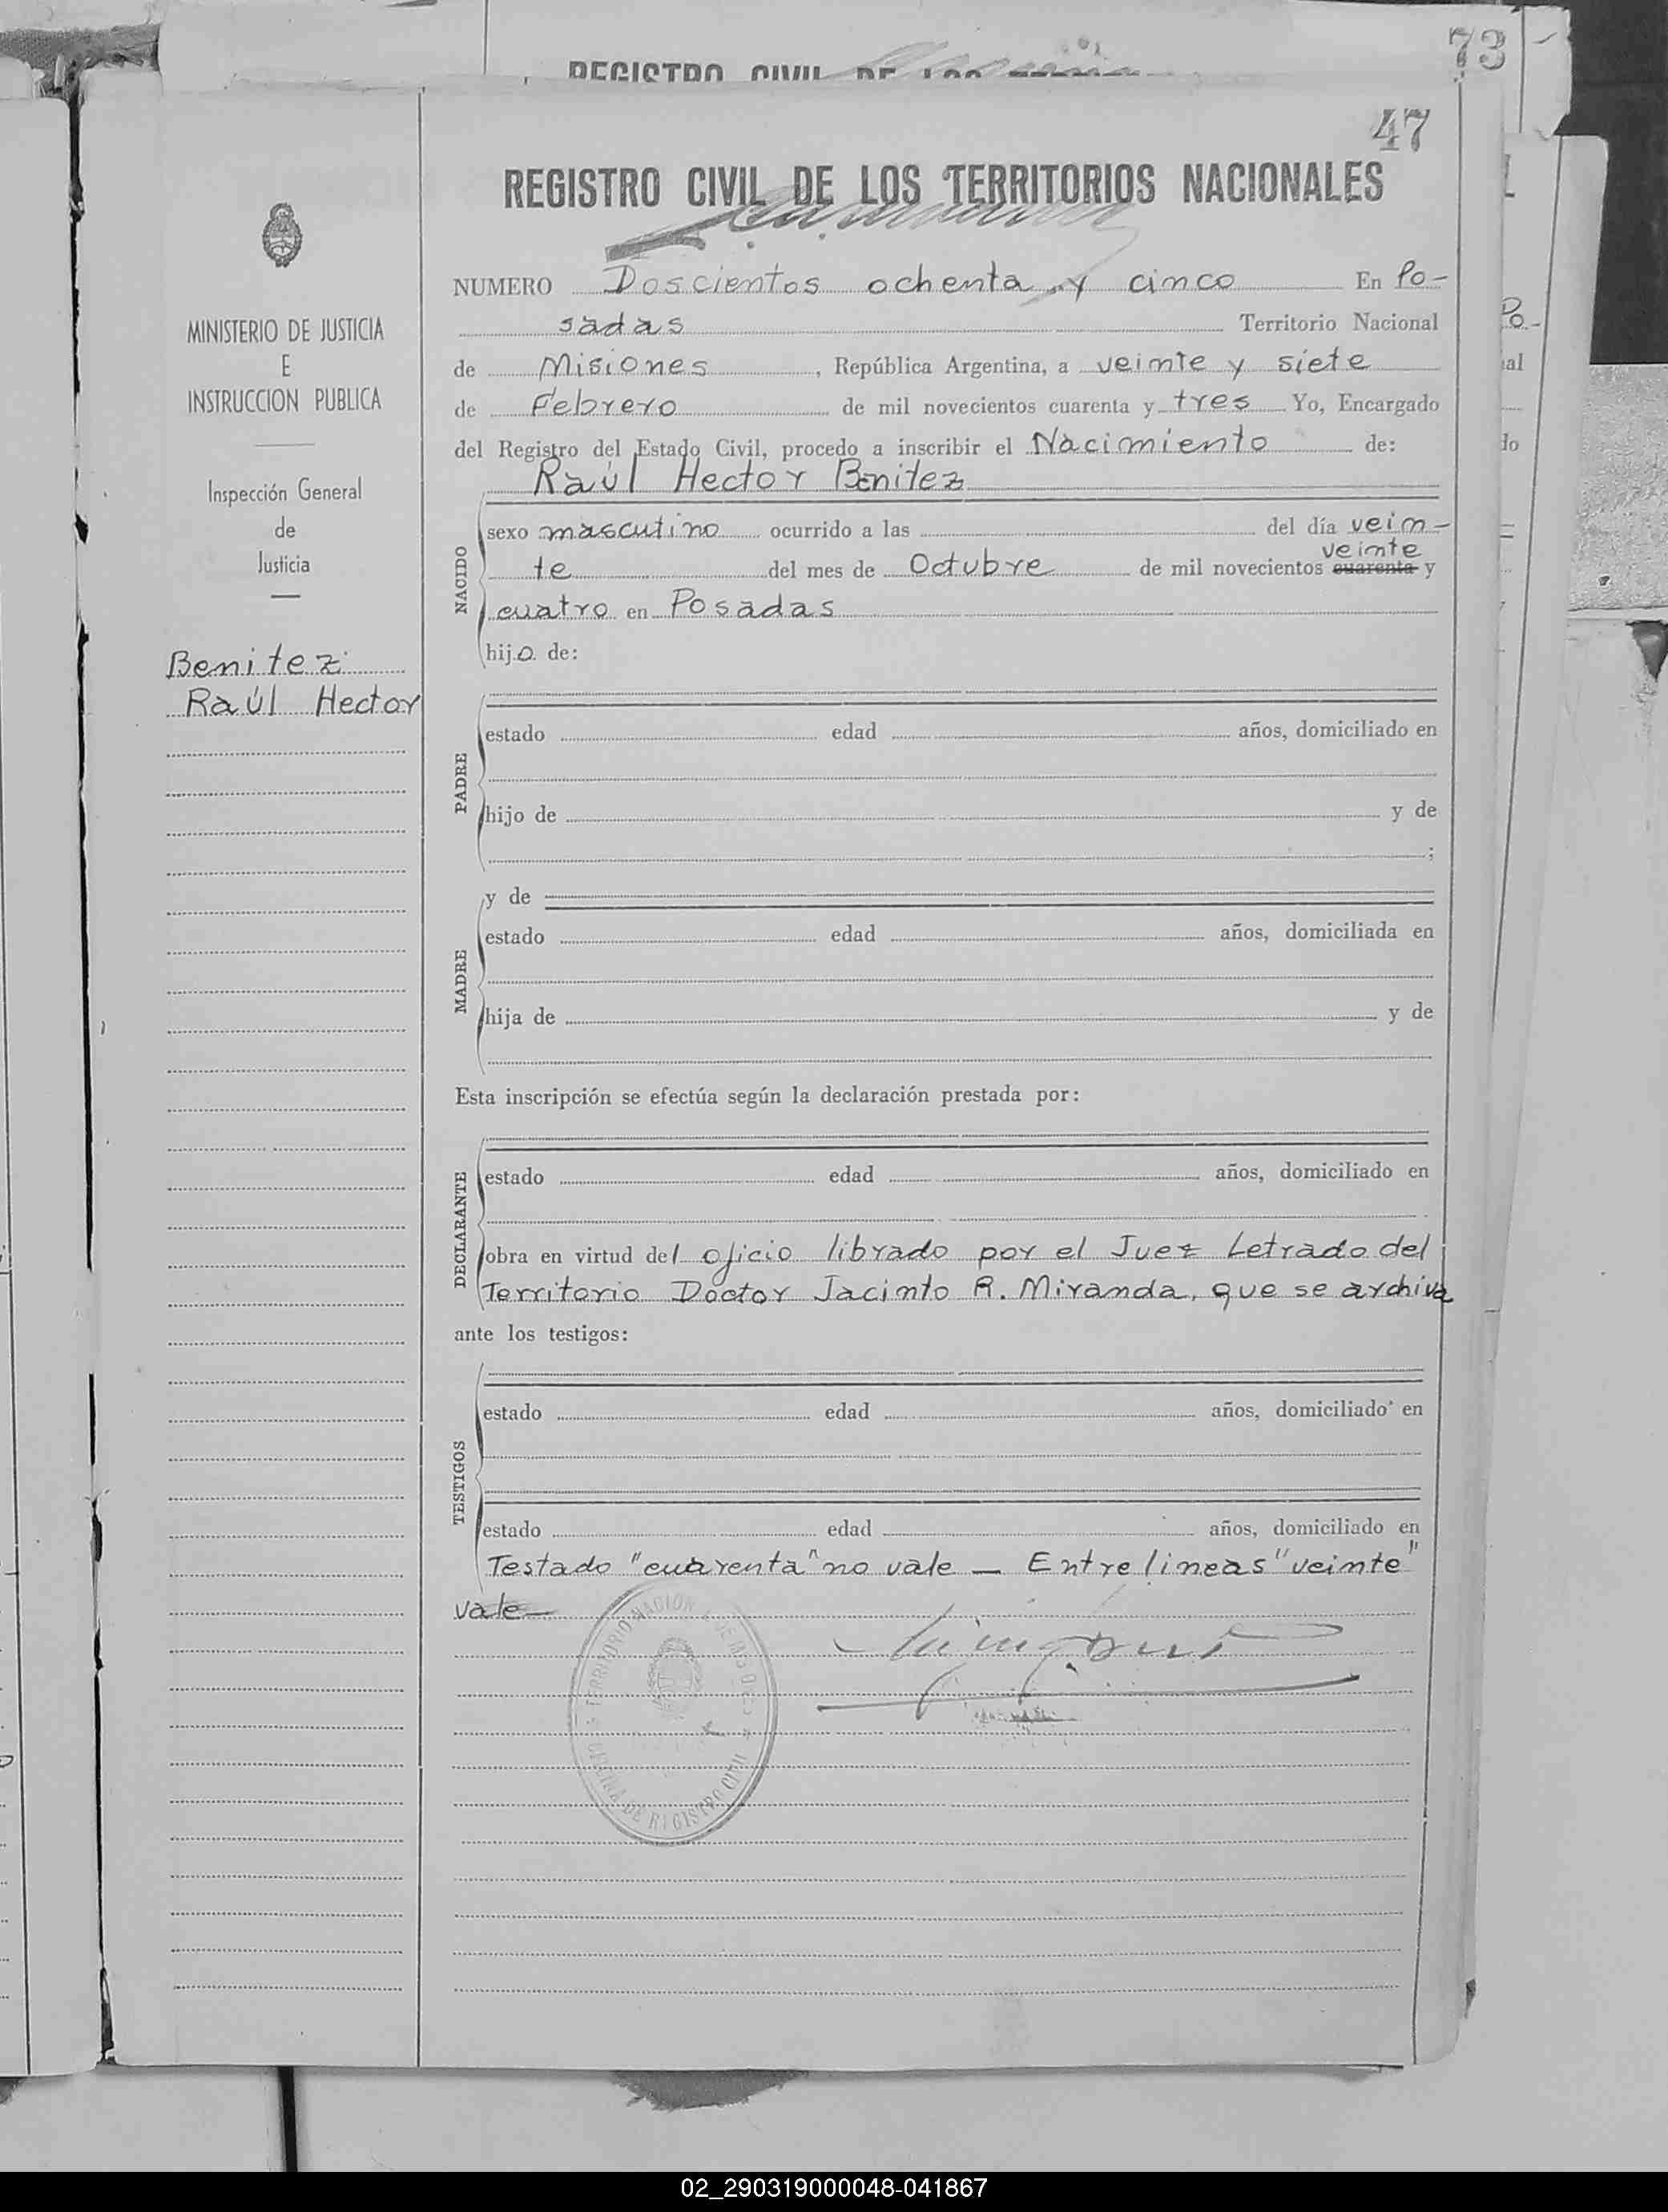 73
REGISTRO CIVIL DE LOS
47
REGISTRO CIVIL DE LOS TERRITORIOS NACIONALES
MINISTERIO DE JUSTICIA
E
INSTRUCCION PUBLICA
Inspección General
de
Justicia
Benitez
Raúl Hector
NUMERO Doscientos ochenta y cinco En Po-
sadas Territorio Nacional
de Misiones, República Argentina, a veinte y siete
de Febrero de mil novecientos cuarenta y tres Yo, Encargado
del Registro del Estado Civil, procedo a inscribir el Nacimiento de:
Raúl Hector Benitez
NACIDO
sexo masculino ocurrido a las del día vein-
veinte
te del mes de Octubre de mil novecientos cuarenta y
cuatro en Posadas
hijo de:
PADRE
estado edad años, domiciliado en
hijo de y de
;
MADRE
y de
estado edad años, domiciliada en
hija de y de
Esta inscripción se efectúa según la declaración prestada por:
DECLARANTE
estado edad años, domiciliado en
obra en virtud del oficio librado por el Juez Letrado del
Territorio Doctor Jacinto R. Miranda, que se archiva
ante los testigos:
TESTIGOS
estado edad años, domiciliado en
estado edad años, domiciliado en
Testado "cuarenta" no vale — Entre lineas "veinte"
vale—
TERRITORIO NACIONAL DE MISIONES
OFICINA DE REGISTRO CIVIL
02_290319000048-041867